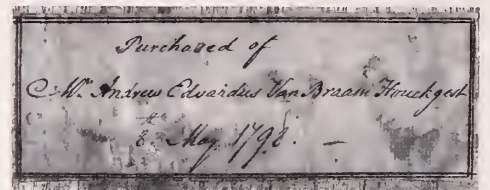 Purchased of
Mr. Andrew Edvardus Van Braam Houckgest
8th May 1798. —